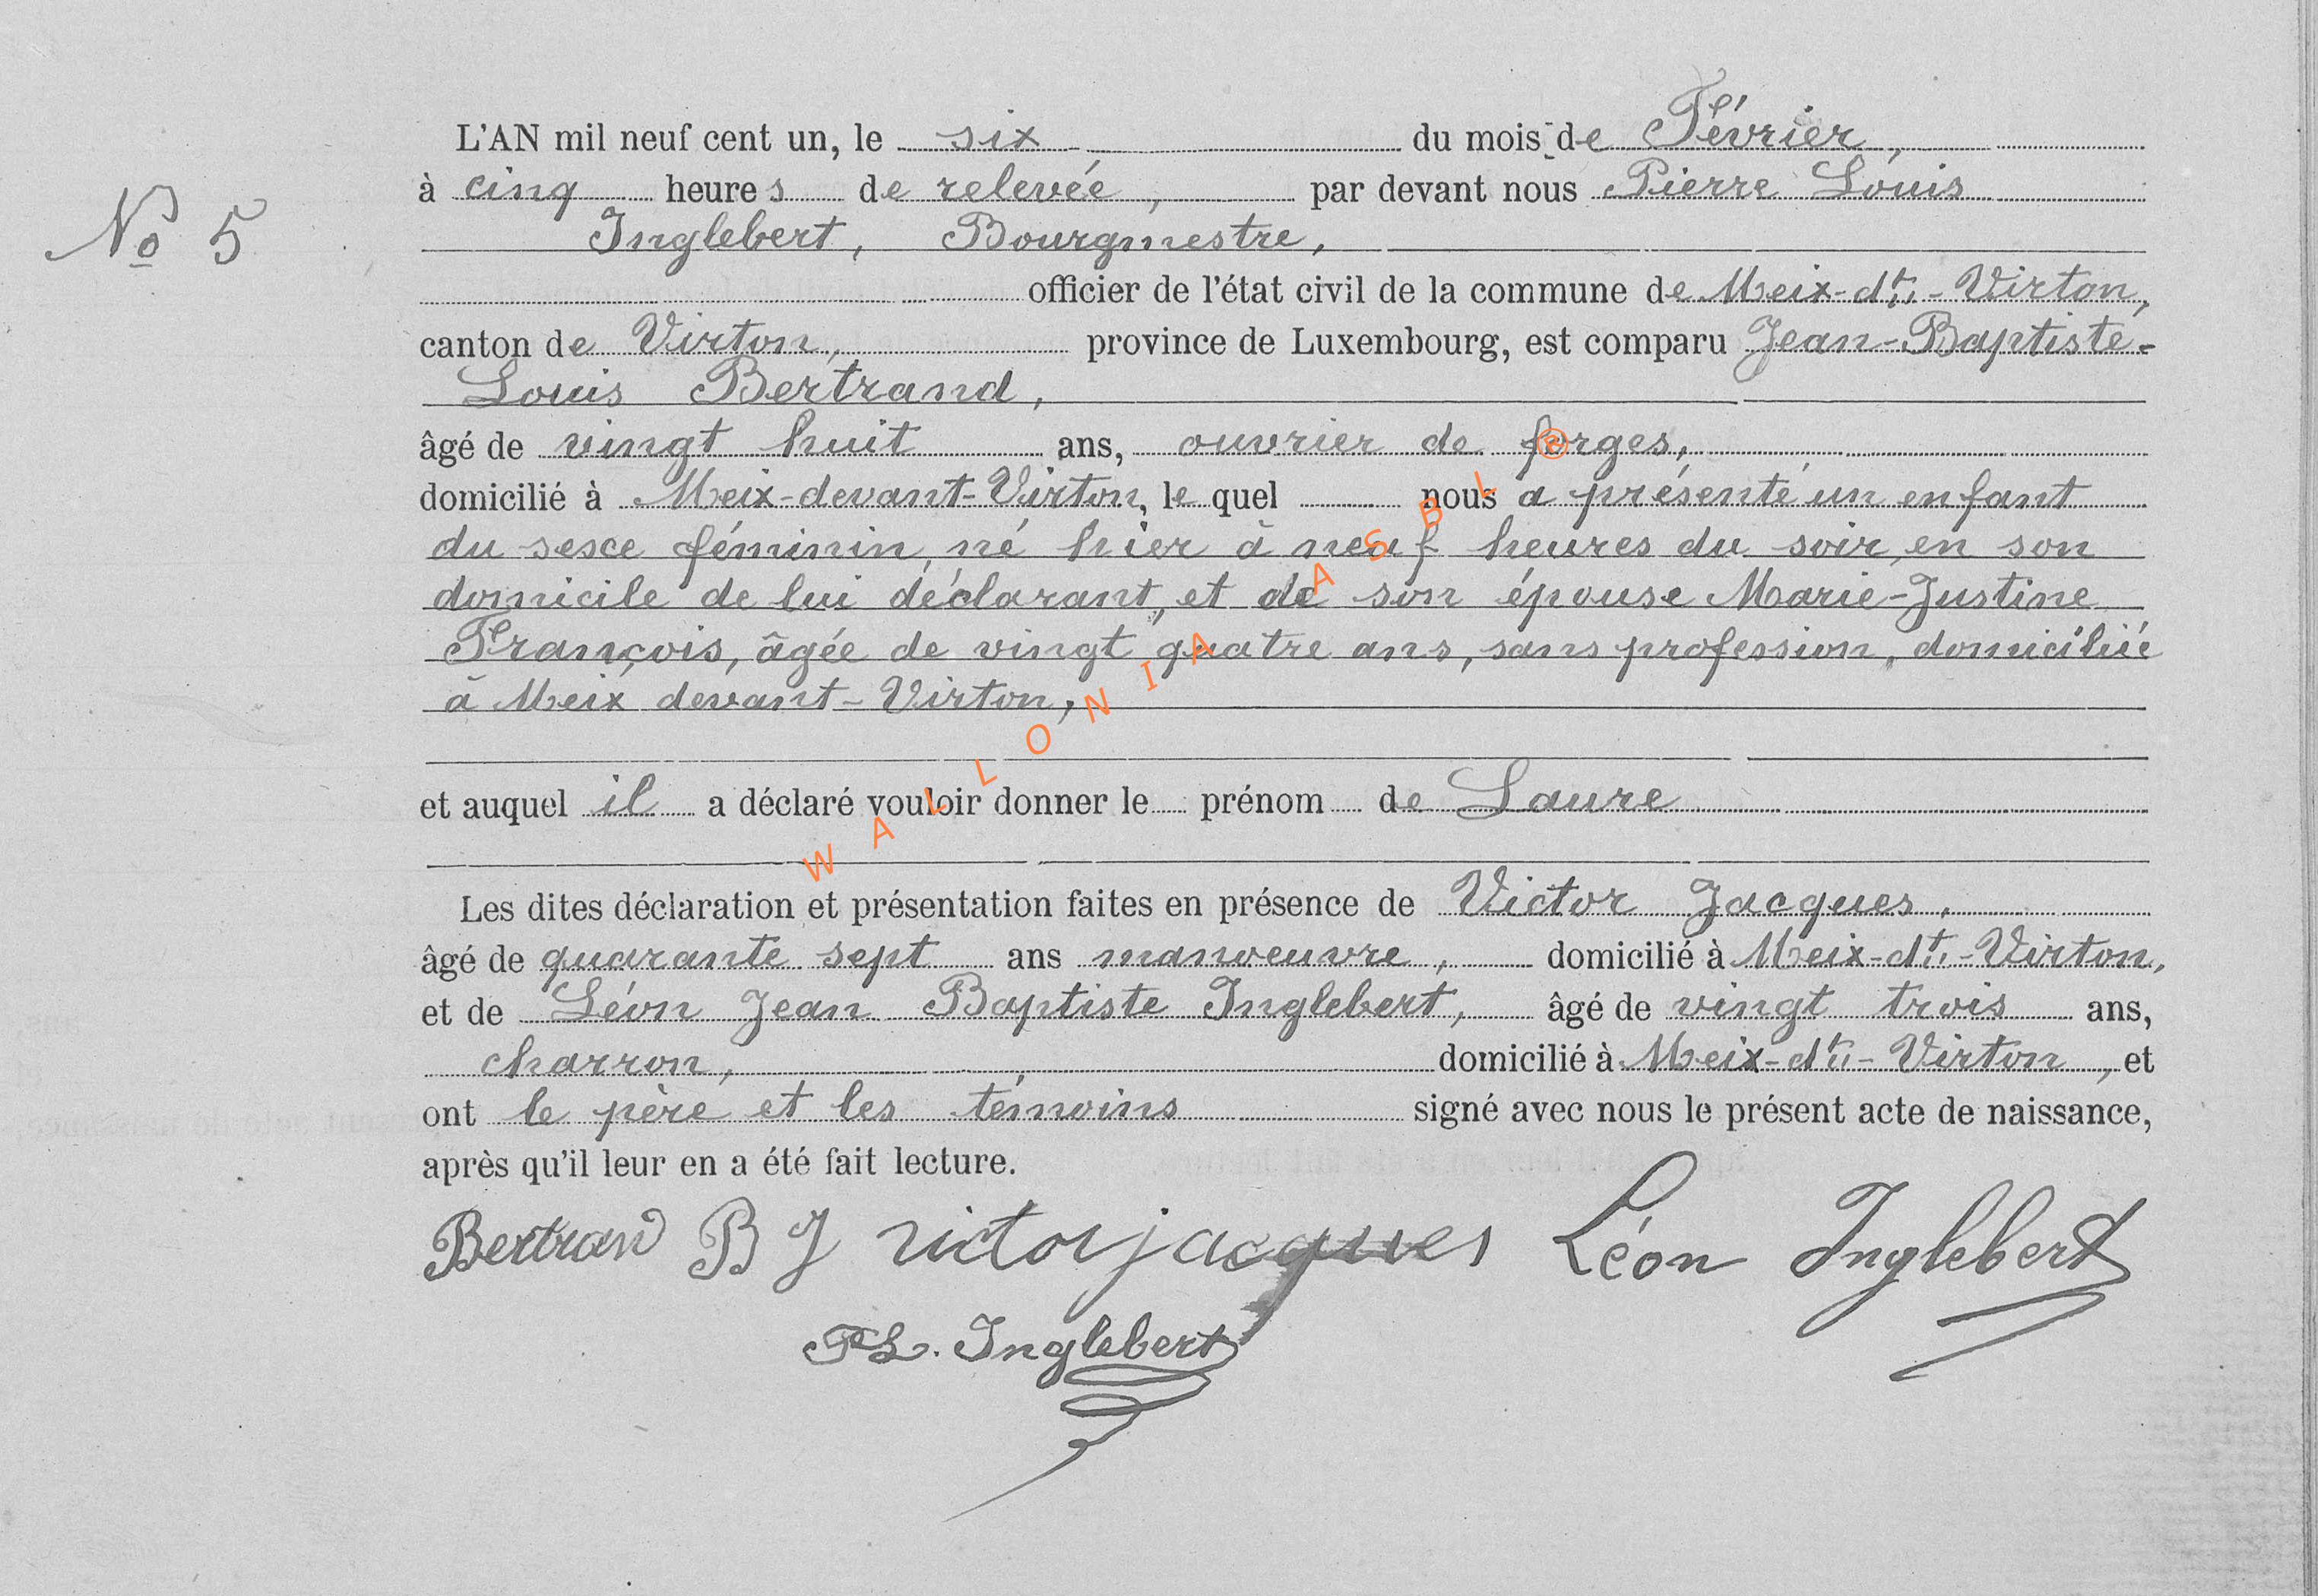 L'AN mil neuf cent un, le six du mois de Février,
à cinq heures de relevée, par devant nous Pierre Louis
No 5
Inglebert, Bourgmestre,
officier de l'état civil de la commune de Meix-dt-Virton,
canton de Virton, province de Luxembourg, est comparu Jean-Baptiste-
Louis Bertrand,
âgé de vingt huit ans, ouvrier de forges,
domicilié à Meix-devant-Virton, le quel nous a présenté un enfant
du sesce féminin, né hier à neuf heures du soir, en son
domicile de lui déclarant, et de son épouse Marie-Justine
François, âgée de vingt quatre ans, sans profession, domiciliée
à Meix devant-Virton,
et auquel il a déclaré vouloir donner le prénom de Laure
Les dites déclaration et présentation faites en présence de Victor Jacques,
âgé de quarante sept ans manoeuvre, domicilié à Meix-dt-Virton,
et de Léon Jean Baptiste Inglebert, âgé de vingt trois ans,
charron, domicilié à Meix-dt-Virton, et
ont le père et les témoins signé avec nous le présent acte de naissance,
après qu'il leur en a été fait lecture.
Bertrand B J victor jacques Léon Inglebert
PL. Inglebert
WALLONIA ASBL ®